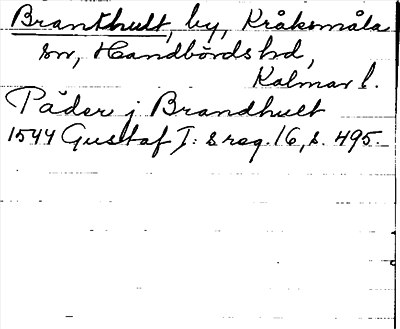 Brankhult, by, Kråksmåla
sn, Handbörds hd,
Kalmar l.
Påder j Brandhult
1544 Gustaf I:s reg. 16, s. 495.